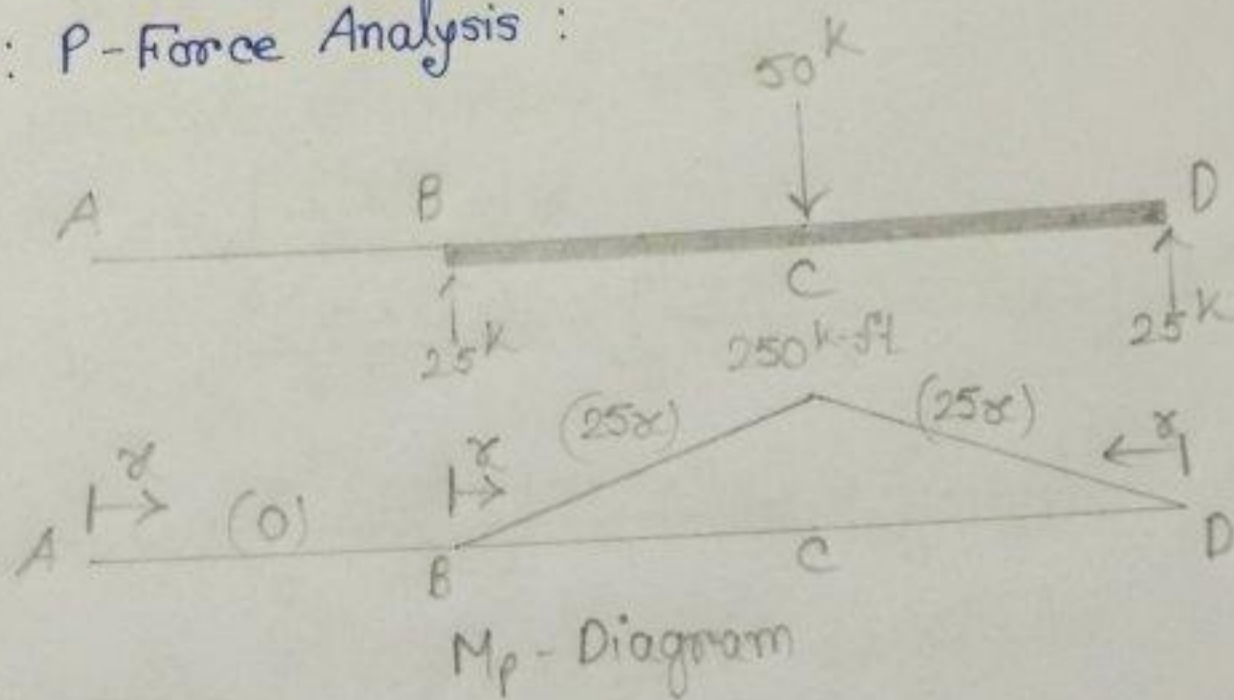 : P-Force Analysis :
50 k
A B D
C
25 k 250 k-ft 25 k
(25x) (25x)
x x x
A (0) B C D
Mp - Diagram